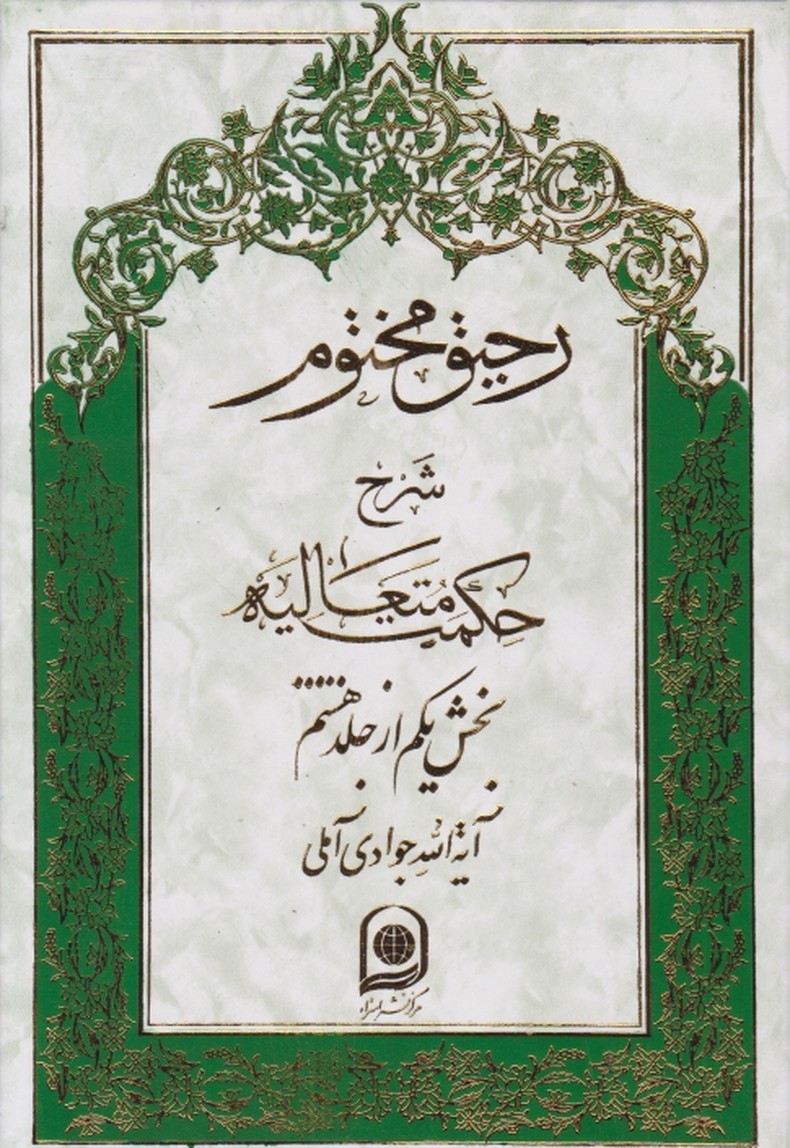 رحیق مختوم
شرح
حکمت متعالیه
بخش یکم از جلد هشتم
آیة الله جوادی آملی
مرکز نشر اسراء